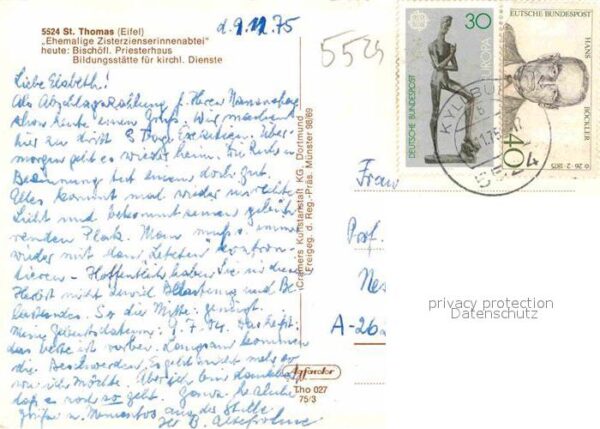 5524 St. Thomas (Eifel)
„Ehemalige Zisterzienserinnenabtei“
heute: Bischöfl. Priesterhaus
Bildungsstätte für kirchl. Dienste
d. 9.11.75
5524
Liebe Elsbeth!
Als Abschlagszahlung f. Herrn
schon heute einen Gruß. Wir machen
hier zu dritt 8 Tage Exerzitien. Über-
morgen geht es wieder heim. Die Ruhe u.
Besinnung tut einem doch gut.
Alles kommt mal wieder ins rechte
Licht und bekommt seinen gebüh-
renden Platz. Man muß immer
wieder mit dem Letzten konfron-
tieren - Hoffentlich haben Sie in diesem
Herbst nicht zuviel Belastung und Be
So die Mitte: genügt.
Meine Geburtsdatum: 9.7.04. Das heißt:
das beste ist vorbei. Langsam kommen
die Beschwerden. Es geht nicht mehr so
wie ich möchte. Aber ich bin dankbar
daß es noch so geht. Ganz herzliche
Grüße u. Mementos aus der Stille
Ihr B.
Cramers Kunstanstalt KG, Dortmund
Freigeg. d. Reg.-Präs. Münster 98/69
Tho 027
75/3
30
EUROPA
DEUTSCHE BUNDESPOST
DEUTSCHE BUNDESPOST
HANS
BÖCKLER
40
5524
Frau
Prof.
Nes
A-262
privacy protection
Datenschutz